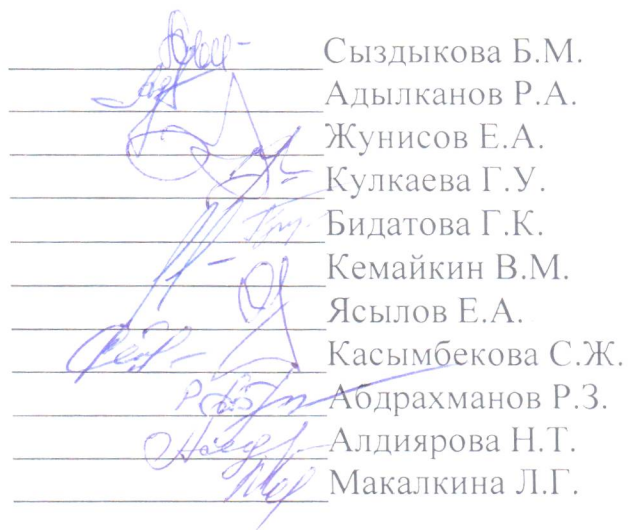 Сыздыкова Б.М.
Адылканов Р.А.
Жунисов Е.А.
Кулкаева Г.У.
Бидатова Г.К.
Кемайкин В.М.
Ясылов Е.А.
Касымбекова С.Ж.
Абдрахманов Р.З.
Алдиярова Н.Т.
Макалкина Л.Г.